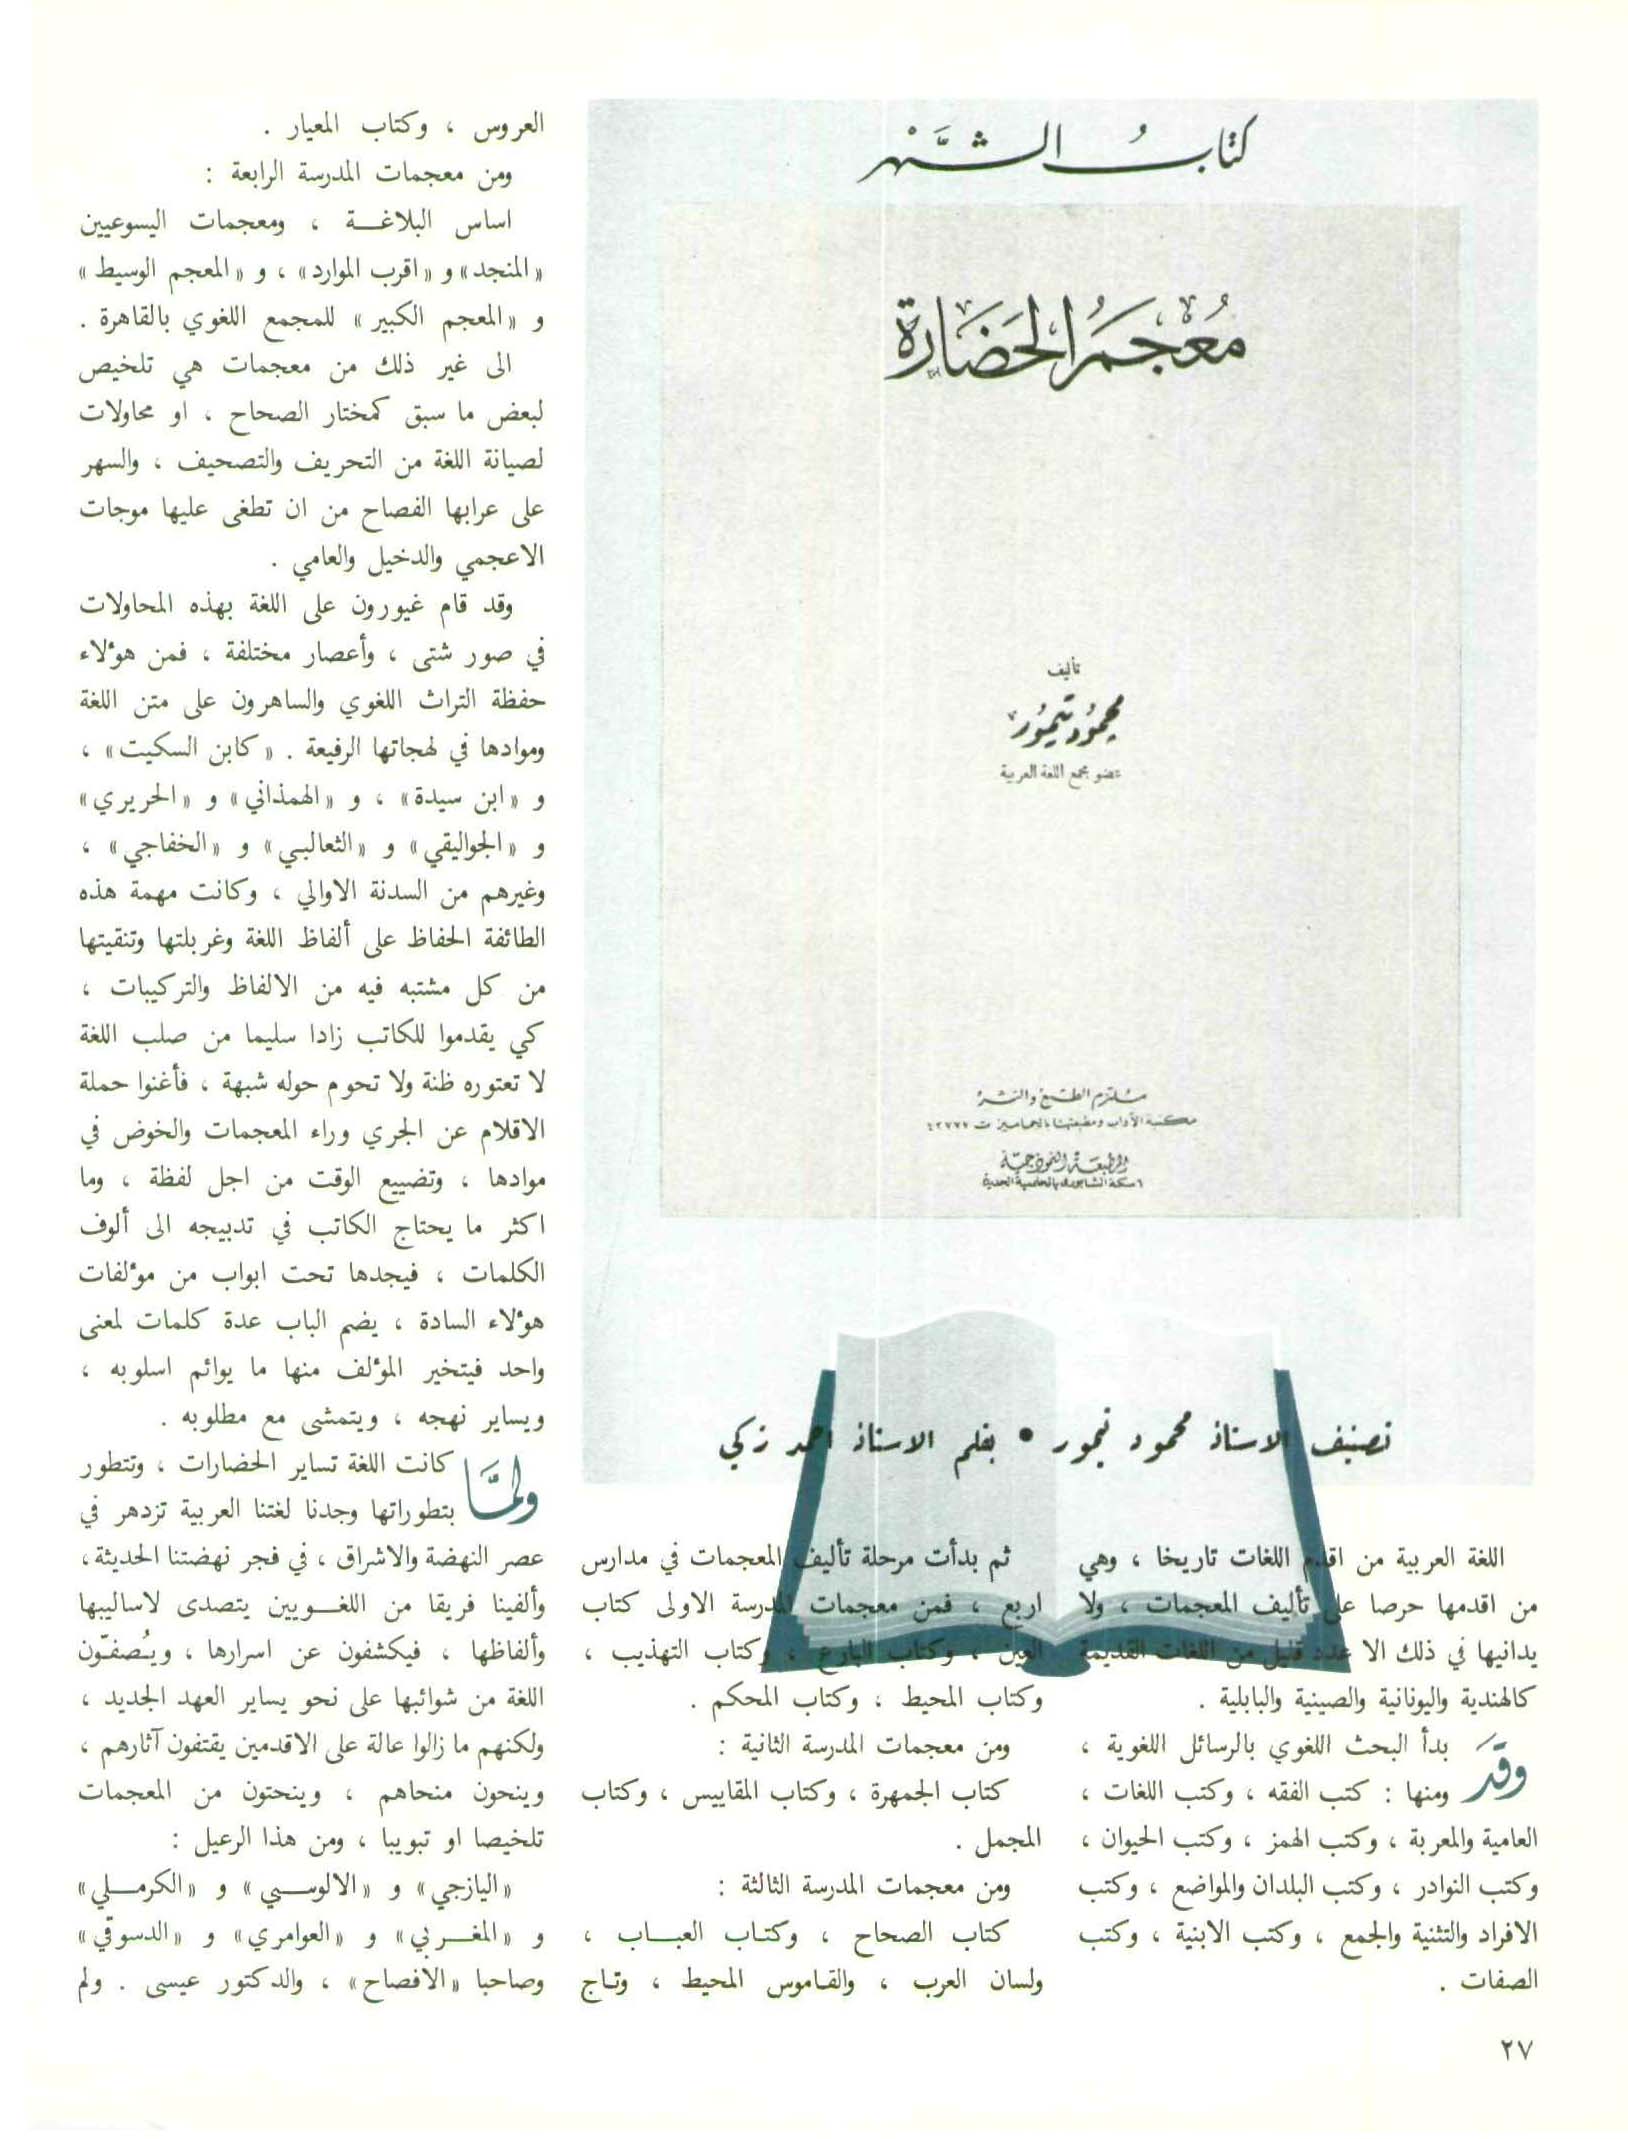 كتاب الشهر
معجم الحضارة
تأليف
محمود تيمور
عضو مجمع اللغة العربية
ملتزم الطبع والنشر
مكتبة الآداب ومطبعتها بالجماميز ت ٤٢٧٧٧
المطبعة النموذجية
٦ سكة الشابوري بالحلمية الجديدة
تصنيف الاستاذ محمود تيمور • بقلم الاستاذ احمد زكي
اللغة العربية من اقدم اللغات تاريخا ، وهي
من اقدمها حرصا على تأليف المعجمات ، ولا
يدانيها في ذلك الا عدد قليل من اللغات القديمة
كالهندية واليونانية والصينية والبابلية .
وقد بدأ البحث اللغوي بالرسائل اللغوية ،
ومنها : كتب الفقه ، وكتب اللغات ،
العامية والمعربة ، وكتب الهمز ، وكتب الحيوان ،
وكتب النوادر ، وكتب البلدان والمواضع ، وكتب
الافراد والتثنية والجمع ، وكتب الابنية ، وكتب
الصفات .
ثم بدأت مرحلة تأليف المعجمات في مدارس
اربع ، فمن معجمات المدرسة الاولى كتاب
العين ، وكتاب البارع ، وكتاب التهذيب ،
وكتاب المحيط ، وكتاب المحكم .
ومن معجمات المدرسة الثانية :
كتاب الجمهرة ، وكتاب المقاييس ، وكتاب
المجمل .
ومن معجمات المدرسة الثالثة :
كتاب الصحاح ، وكتاب العبـاب ،
ولسان العرب ، والقاموس المحيط ، وتاج
العروس ، وكتاب المعيار .
ومن معجمات المدرسة الرابعة :
اساس البلاغـة ، ومعجمات اليسوعيين
«المنجد» و «اقرب الموارد» ، و «المعجم الوسيط»
و «المعجم الكبير» للمجمع اللغوي بالقاهرة .
الى غير ذلك من معجمات هي تلخيص
لبعض ما سبق كمختار الصحاح ، او محاولات
لصيانة اللغة من التحريف والتصحيف ، والسهر
على عرابها الفصاح من ان تطغى عليها موجات
الاعجمي والدخيل والعامي .
وقد قام غيورون على اللغة بهذه المحاولات
في صور شتى ، وأعصار مختلفة ، فمن هؤلاء
حفظة التراث اللغوي والساهرون على متن اللغة
وموادها في لهجاتها الرفيعة . «كابن السكيت» ،
و «ابن سيدة» ، و «الهمذاني» و «الحريري»
و «الجواليقي» و «الثعالبي» و «الخفاجي» ،
وغيرهم من السدنة الاوالي ، وكانت مهمة هذه
الطائفة الحفاظ على ألفاظ اللغة وغربلتها وتنقيتها
من كل مشتبه فيه من الالفاظ والتركيبات ،
كي يقدموا للكاتب زادا سليما من صلب اللغة
لا تعتوره ظنة ولا تحوم حوله شبهة ، فأغنوا حملة
الاقلام عن الجري وراء المعجمات والخوض في
موادها ، وتضييع الوقت من اجل لفظة ، وما
اكثر ما يحتاج الكاتب في تدبيجه الى ألوف
الكلمات ، فيجدها تحت ابواب من مؤلفات
هؤلاء السادة ، يضم الباب عدة كلمات لمعنى
واحد فيتخير المؤلف منها ما يوائم اسلوبه ،
ويساير نهجه ، ويتمشى مع مطلوبه .
ولمّا كانت اللغة تساير الحضارات ، وتتطور
بتطوراتها وجدنا لغتنا العربية تزدهر في
عصر النهضة والاشراق ، في فجر نهضتنا الحديثة ،
وألفينا فريقا من اللغـويين يتصدى لاساليبها
وألفاظها ، فيكشفون عن اسرارها ، ويُصفّون
اللغة من شوائبها على نحو يساير العهد الجديد ،
ولكنهم ما زالوا عالة على الاقدمين يقتفون آثارهم ،
وينحون منحاهم ، وينحتون من المعجمات
تلخيصا او تبويبا ، ومن هذا الرعيل :
«اليازجي» و «الالوسـي» و «الكرمـلي»
و «المغـربي» و «العوامري» و «الدسوقي»
وصاحبا «الافصاح» ، والدكتور عيسى . ولم
٢٧